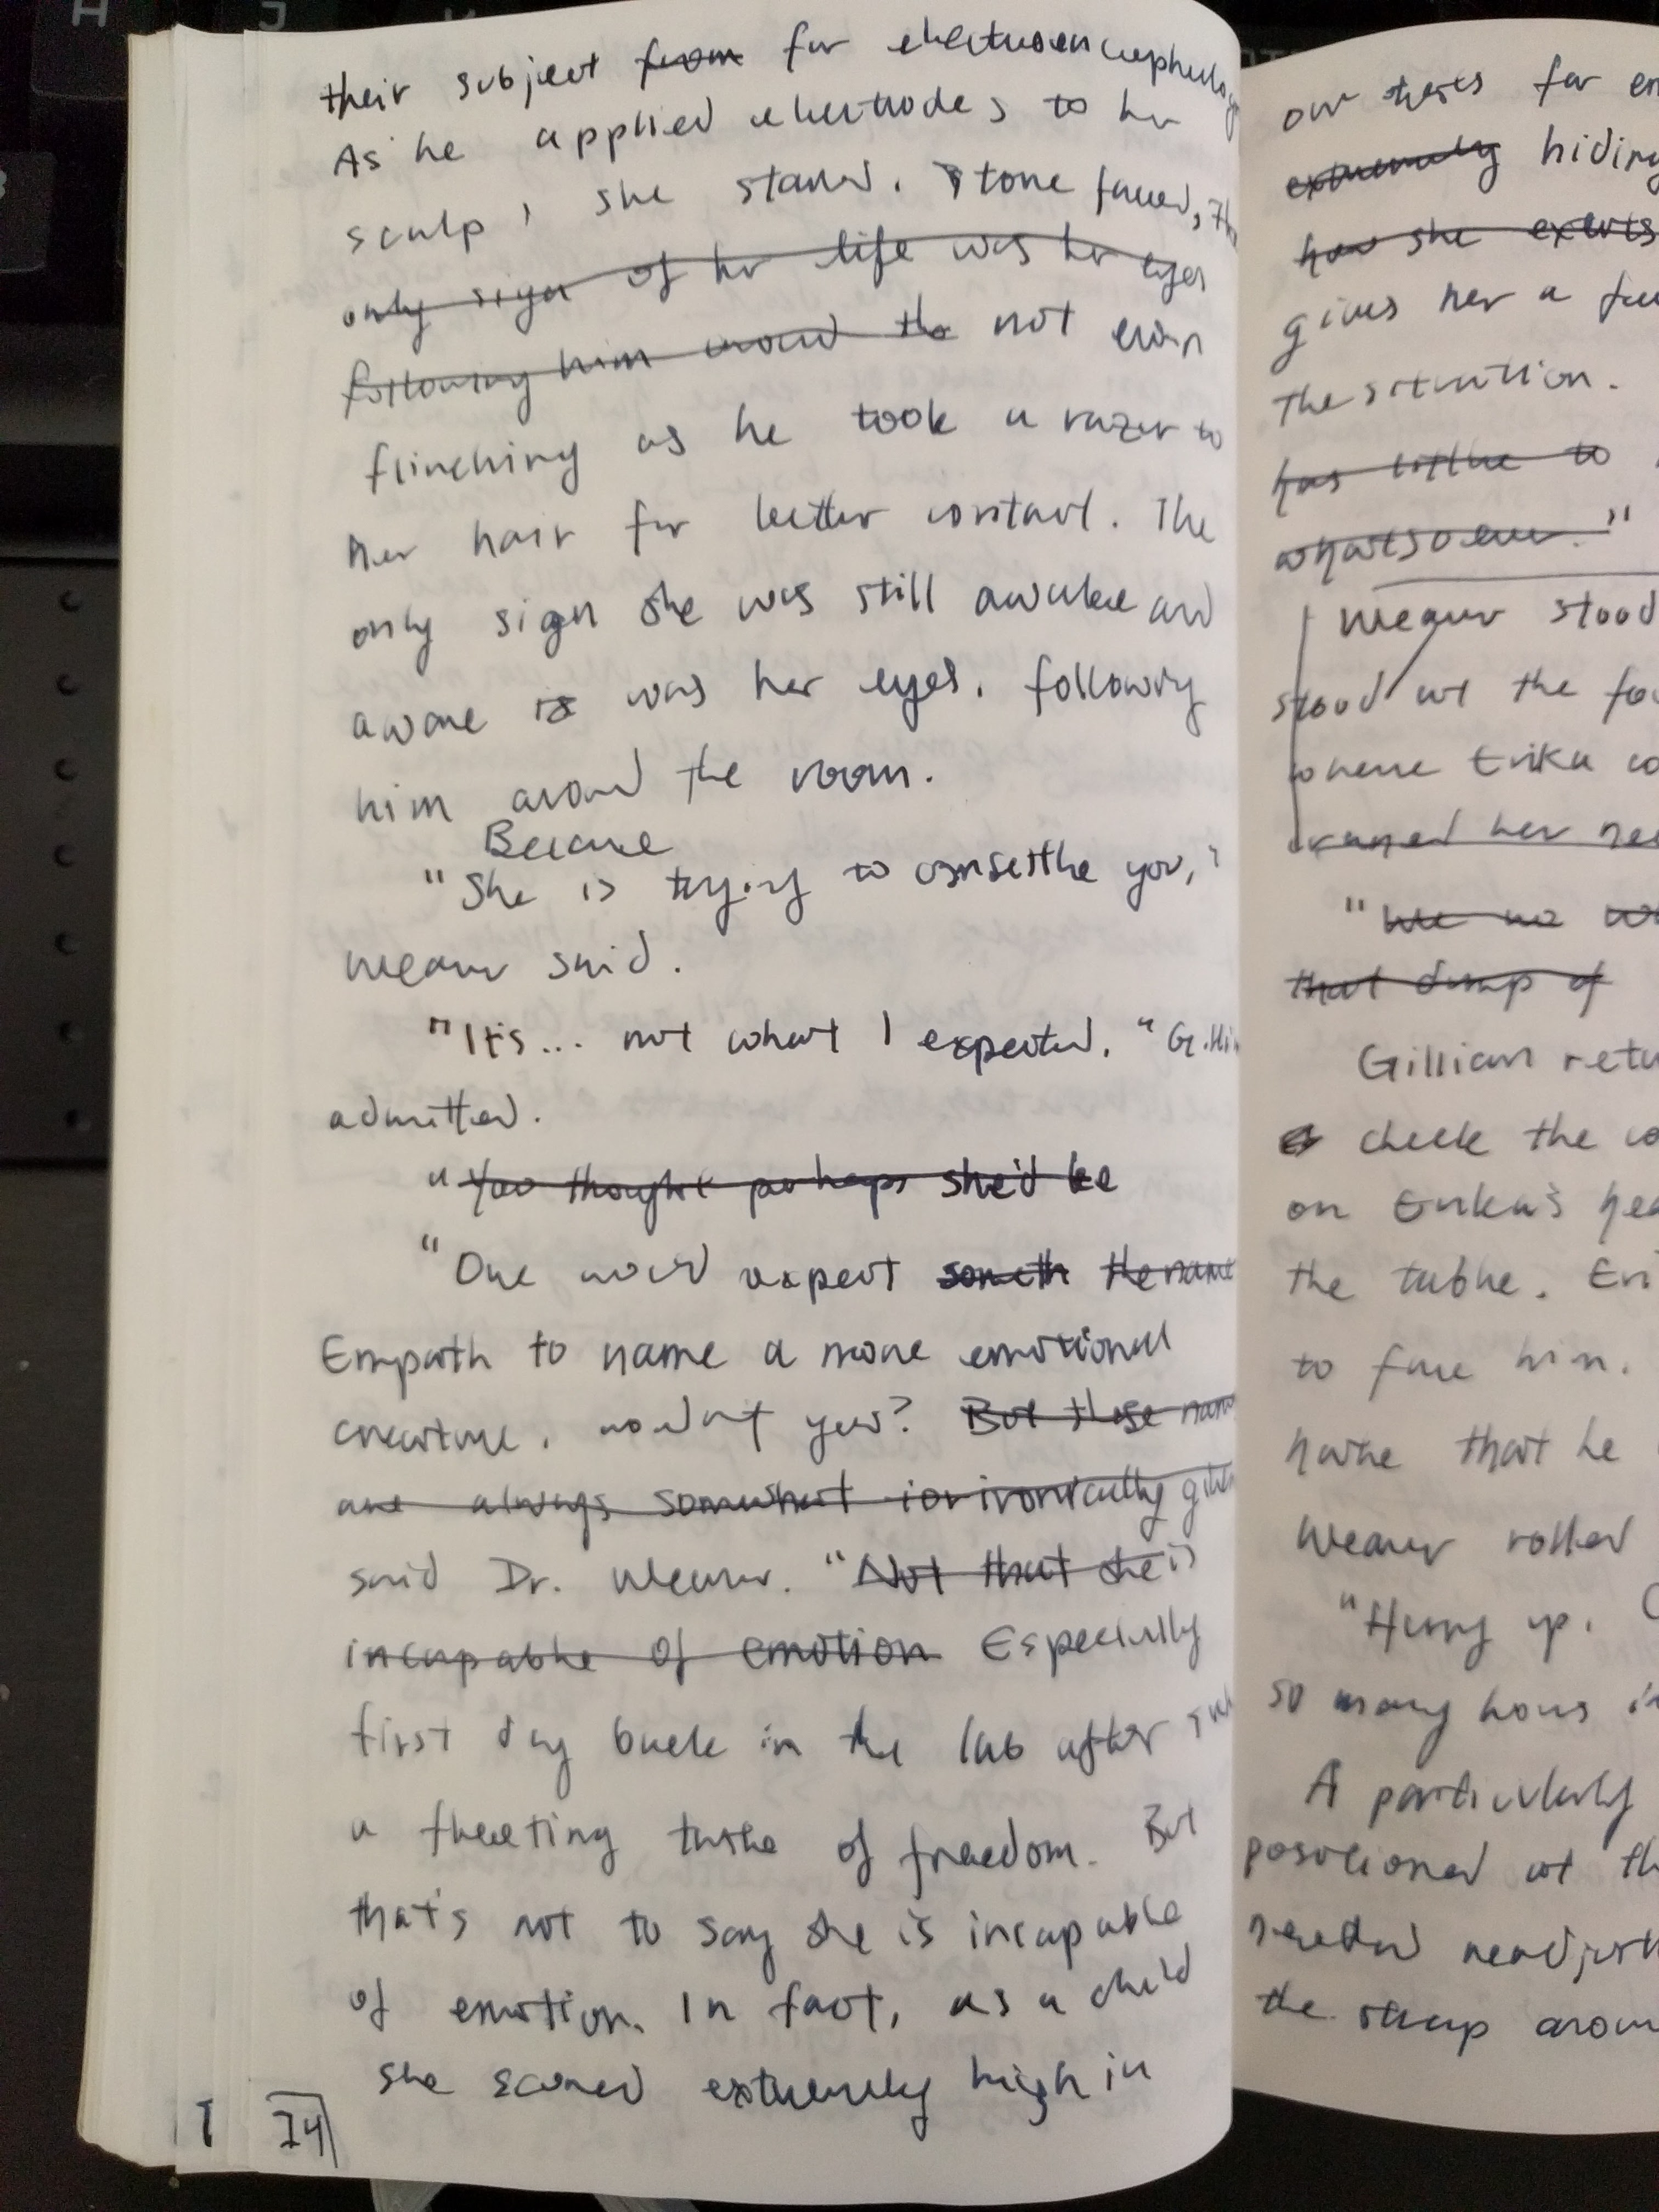 their subject from for
As he applied electrodes to her
sculp, she stared. Stone faced,
only sign of her life was her eyes
following him around the not even
flinching as he took a razer to
her hair for better contact. The
only sign she was still awake and
aware is was her eyes, following
him around the room.
Because
"She is trying to you,"
Weaver said.
"It's... not what I expected."
admitted.
"You thought perhaps she'd be
"One would expect someth the name
Empath to name a more emotional
creature, wouldn't you? But those
are always somewhat ironically
said Dr. Weaver. "Not that she is
incapable of emotion Especially
first day back in the lab after such
a fleeting taste of freedom. But
that's not to say she is incapable
of emotion. In fact, as a child
she scored extremely high in
14
our tests for
extremely hiding
how she exerts
gives her a
the situation.
has little to
whatsoever."
Weaver stood
stood at the
where Erika
craned her
"We no
that dump of
Gillian
check the
on Erika's
the table.
to face him.
that he
Weaver rolled
"Hurry up.
so many hours
A particularly
positioned at
needed
the strap